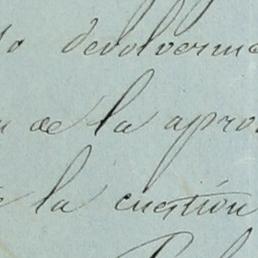 devolverme
de la apro
la cuestión